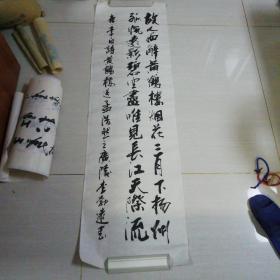 故人西辞黄鹤楼烟花三月下扬州
孤帆远影碧空尽唯见长江天际流
李白诗黄鹤楼送孟浩然之广陵